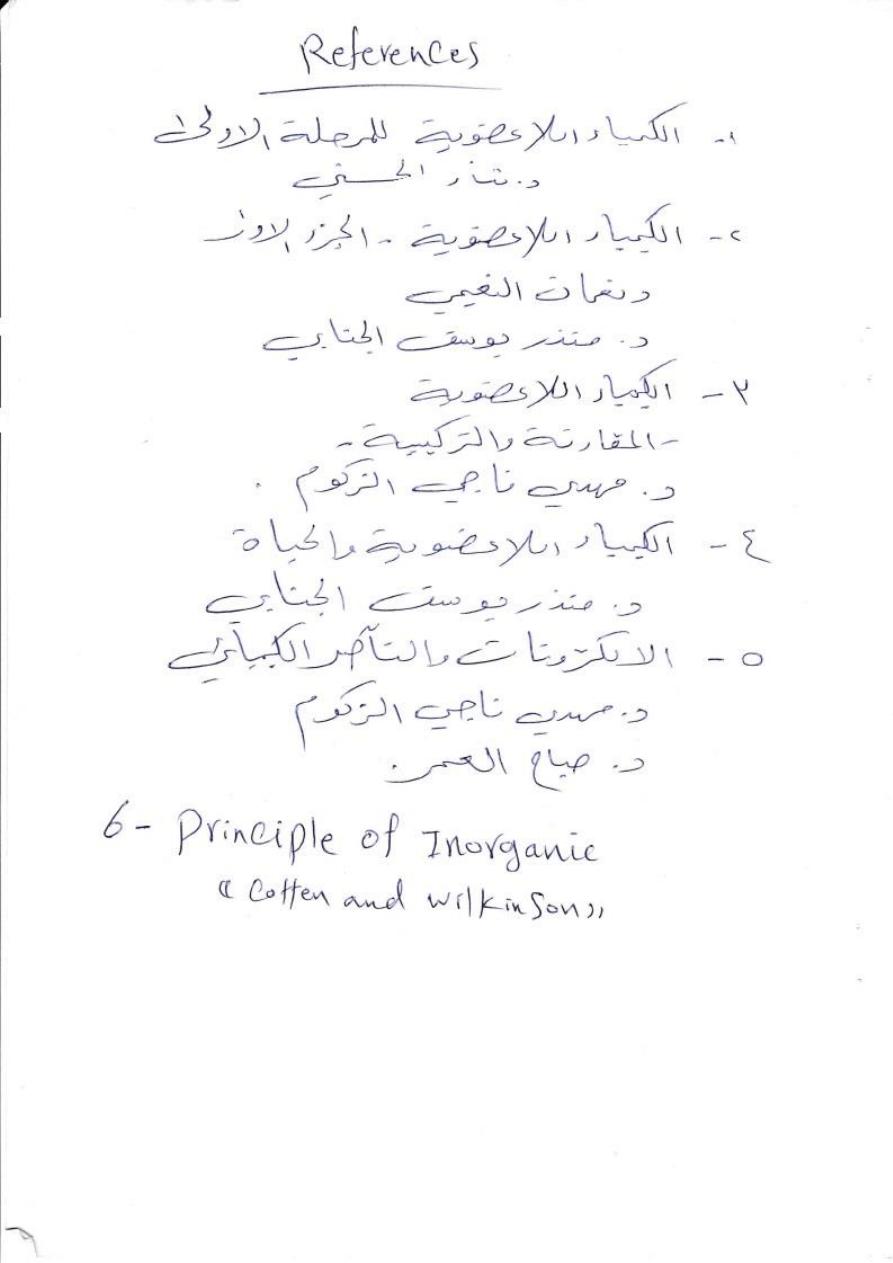 References
١- الكيمياء اللاعضوية للمرحلة الاولى
د. الحسني
٢- الكيمياء اللاعضوية - الجزء الاول
د نعمان النعيمي
د. منذر يوسف الجنابي
٣- الكيمياء اللاعضوية
- المقارنة والتركيبية -
د. مهدي ناجي الزكوم .
٤- الكيمياء اللاعضوية والحياة
د. منذر يوسف الجنابي
٥- الالكترونات والتآصر الكيميائي
د. مهدي ناجي الزكوم
د. صباح العمر.
6- Principle of Inorganic
" Cotten and wilkinson "